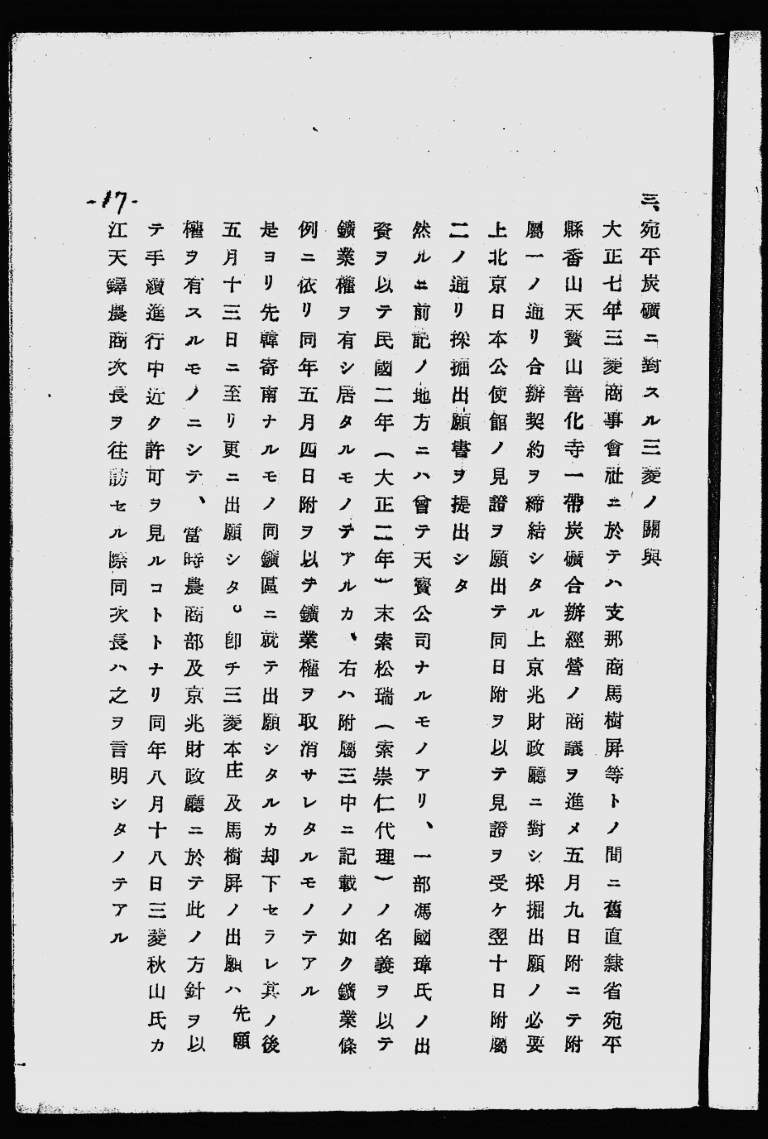 三、宛平炭礦ニ對スル三菱ノ關與
大正七年三菱商事會社ニ於テハ支那商馬樹屏等トノ間ニ舊直隸省宛平
縣香山天寳山善化寺一帶炭礦合辦經營ノ商議ヲ進メ五月九日附ニテ附
屬一ノ通リ合辦契約ヲ締結シタル上京兆財政廳ニ對シ採掘出願ノ必要
上北京日本公使館ノ見證ヲ願出テ同日附ヲ以テ見證ヲ受ケ翌十日附屬
二ノ通リ採掘出願書ヲ提出シタ
然ルニ前記ノ地方ニハ曾テ天寳公司ナルモノアリ、一部馮國璋氏ノ出
資ヲ以テ民國二年(大正二年)末索松瑞(索崇仁代理)ノ名義ヲ以テ
鑛業權ヲ有シ居タルモノテアルカ、右ハ附屬三中ニ記載ノ如ク鑛業條
例ニ依リ同年五月四日附ヲ以テ鑛業權ヲ取消サレタルモノテアル
是ヨリ先韓寄南ナルモノ同鑛區ニ就テ出願シタルカ却下セラレ其ノ後
五月十三日ニ至リ更ニ出願シタ。卽チ三菱本庄及馬樹屏ノ出願ハ先願
權ヲ有スルモノニシテ、當時農商部及京兆財政廳ニ於テ此ノ方針ヲ以
テ手續進行中近ク許可ヲ見ルコトトナリ同年八月十八日三菱秋山氏カ
江天鐸農商次長ヲ往訪セル際同次長ハ之ヲ言明シタノテアル
-17-